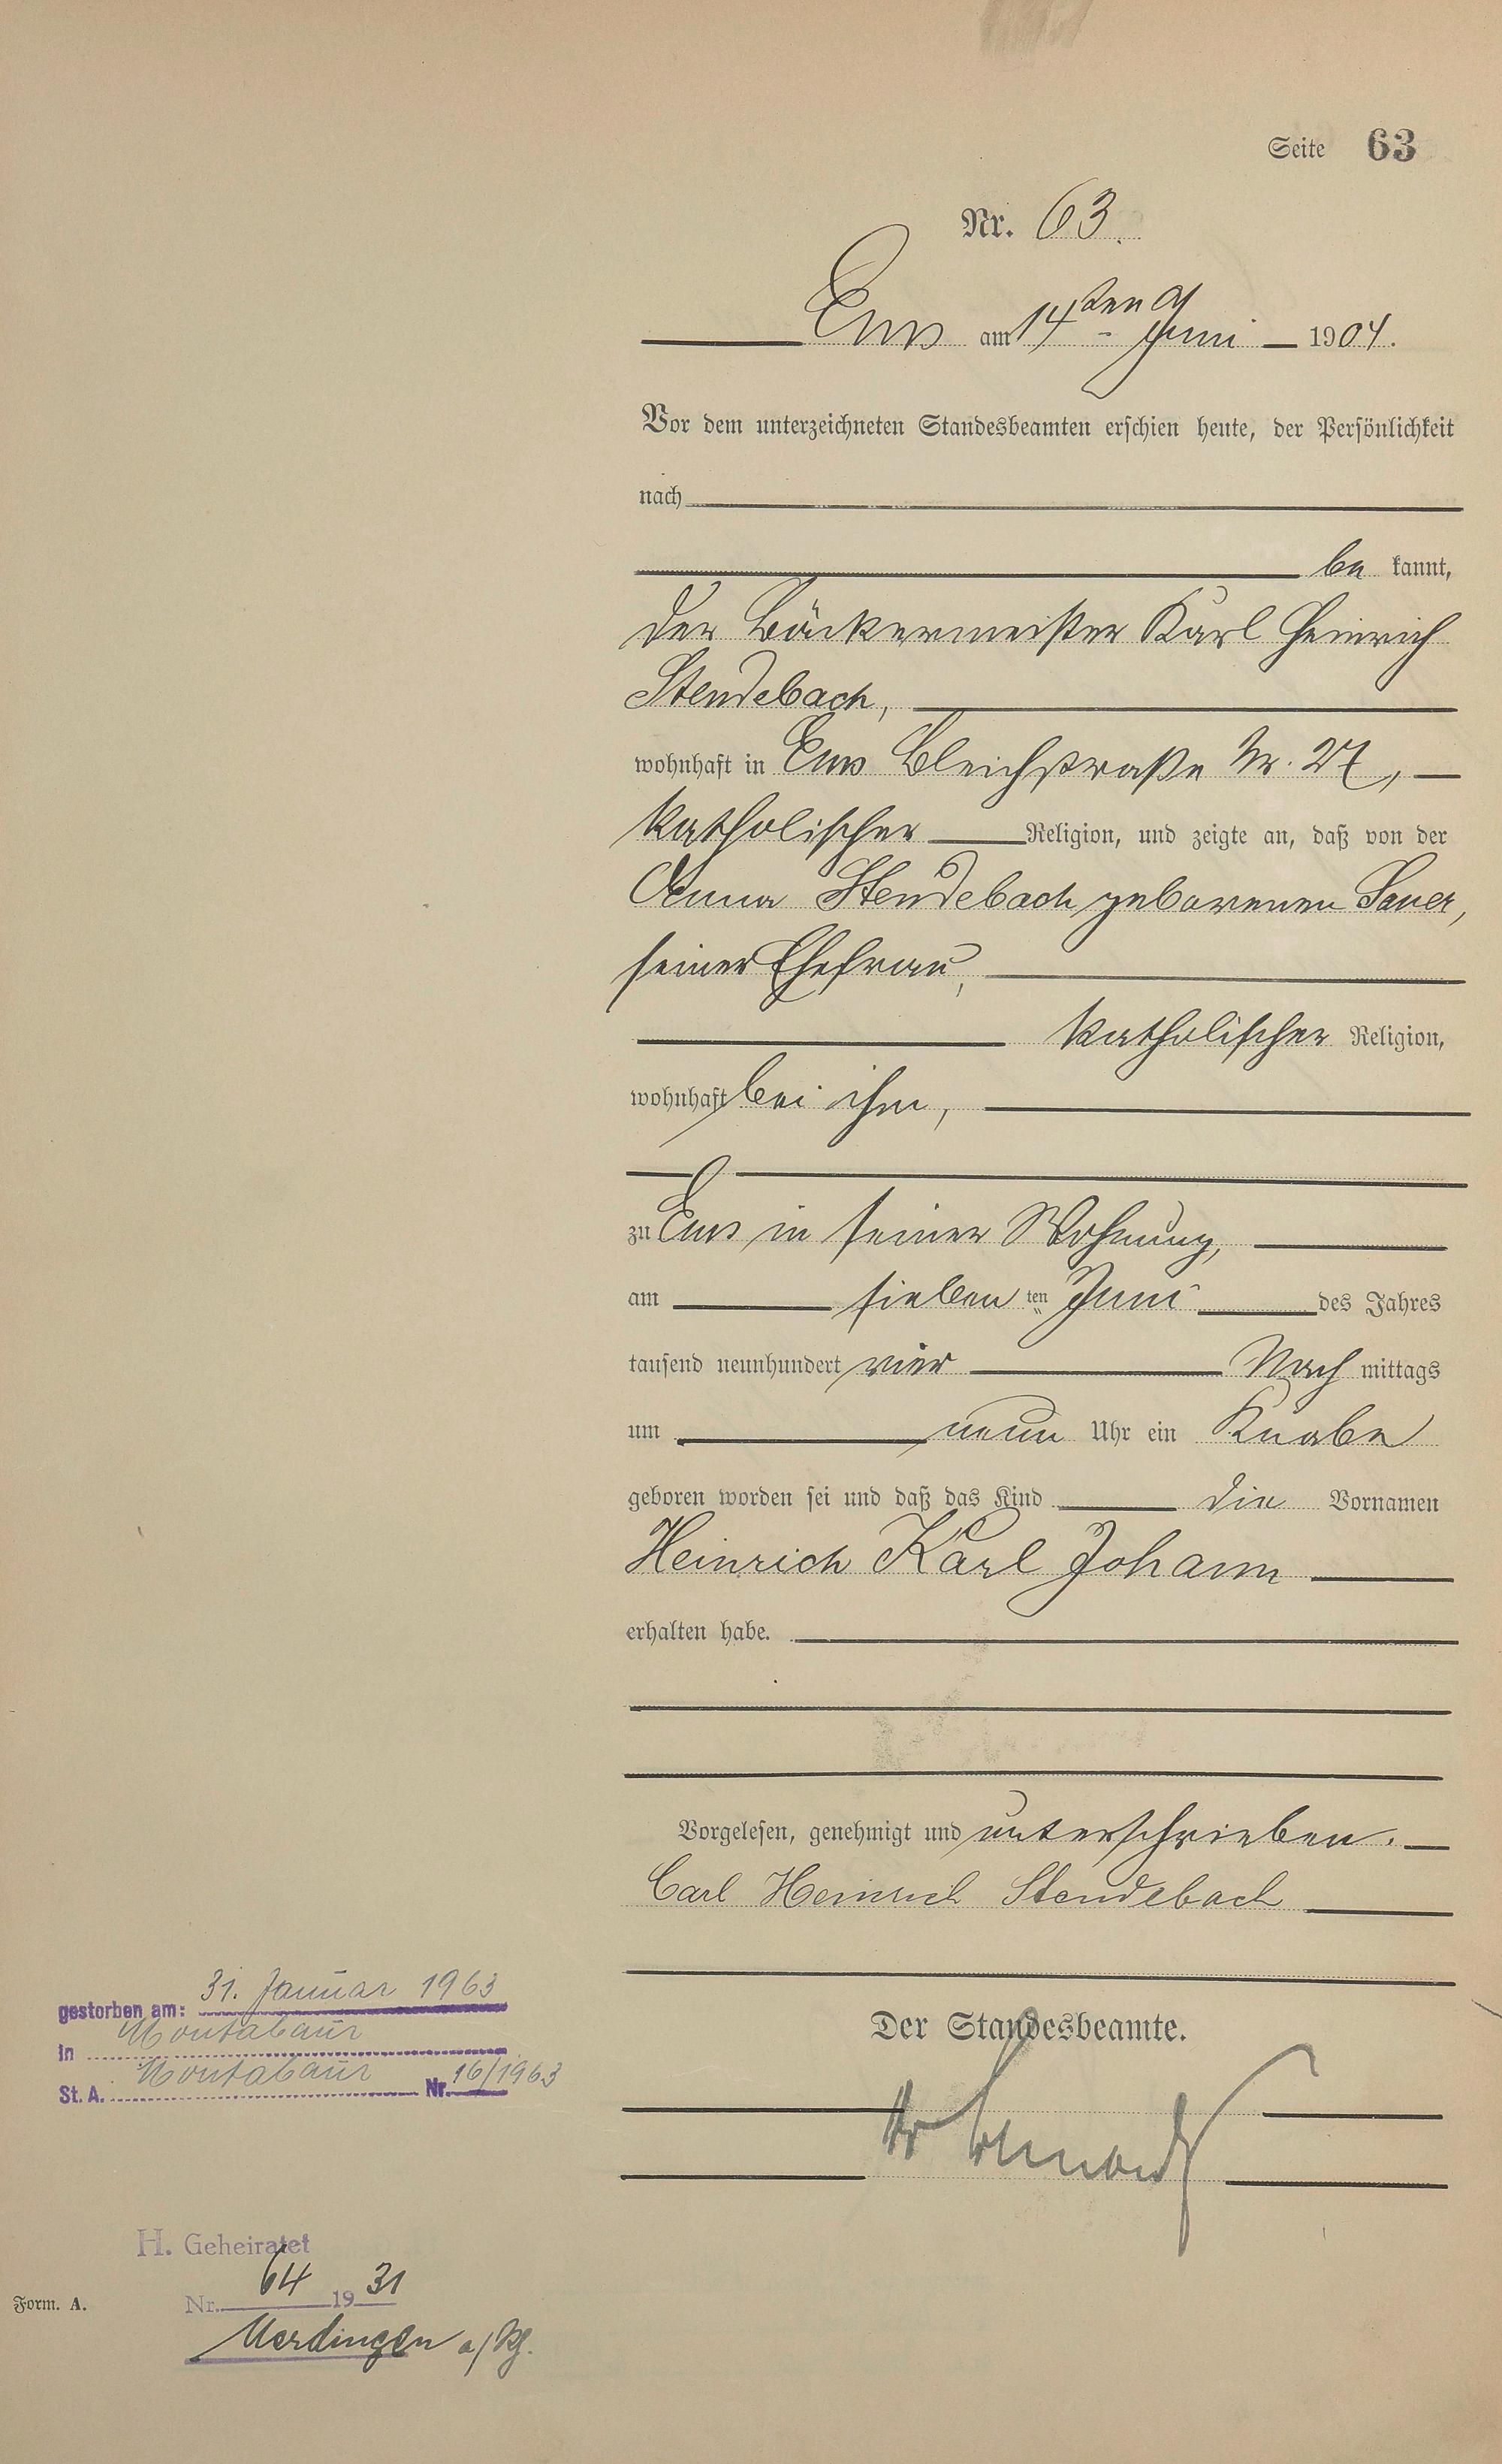 Seite 63
Nr. 63.
Ems am 14ten Juni 1904.
Vor dem unterzeichneten Standesbeamten erschien heute, der Persönlichkeit
nach
be kannt,
der Bäckermeister Karl Heinrich
Stendebach,
wohnhaft in Ems Bleichstraße Nr. 27,
katholischer Religion, und zeigte an, daß von der
Anna Stendebach geborenen Sauer,
seiner Ehefrau,
katholischer Religion,
wohnhaft bei ihm,
zu Ems in seiner Wohnung,
am sieben ten Juni des Jahres
tausend neunhundert vier Nach mittags
um neun Uhr ein Knabe
geboren worden sei und daß das Kind die Vornamen
Heinrich Karl Johann
erhalten habe.
Vorgelesen, genehmigt und unterschrieben.
Carl Heinrich Stendebach
Der Standesbeamte.
gestorben am: 31. Januar 1963
in Montabaur
St. A. Montabaur Nr. 16/1963
H. Geheiratet
Nr. 64 1931
Uerdingen a/Rh.
Form. A.